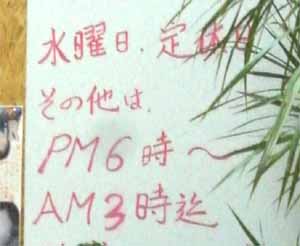 水曜日、定休日
その他は、
PM6時〜
AM3時迄